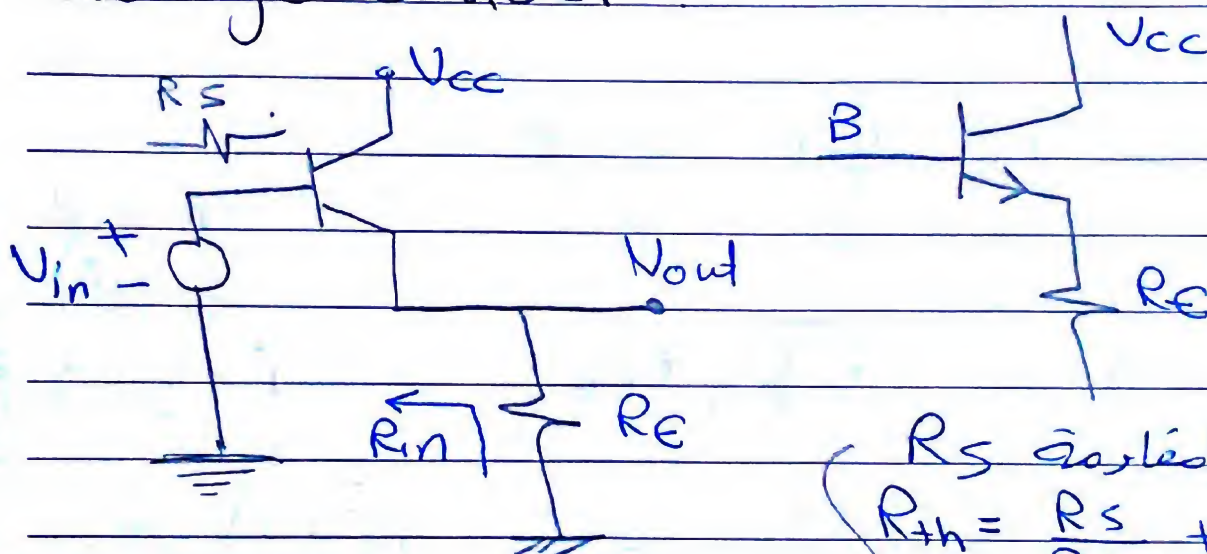 RS
Vcc
Vcc
B
Vin + -
Vout
RE
Rin
RE
RS
Rth = RS